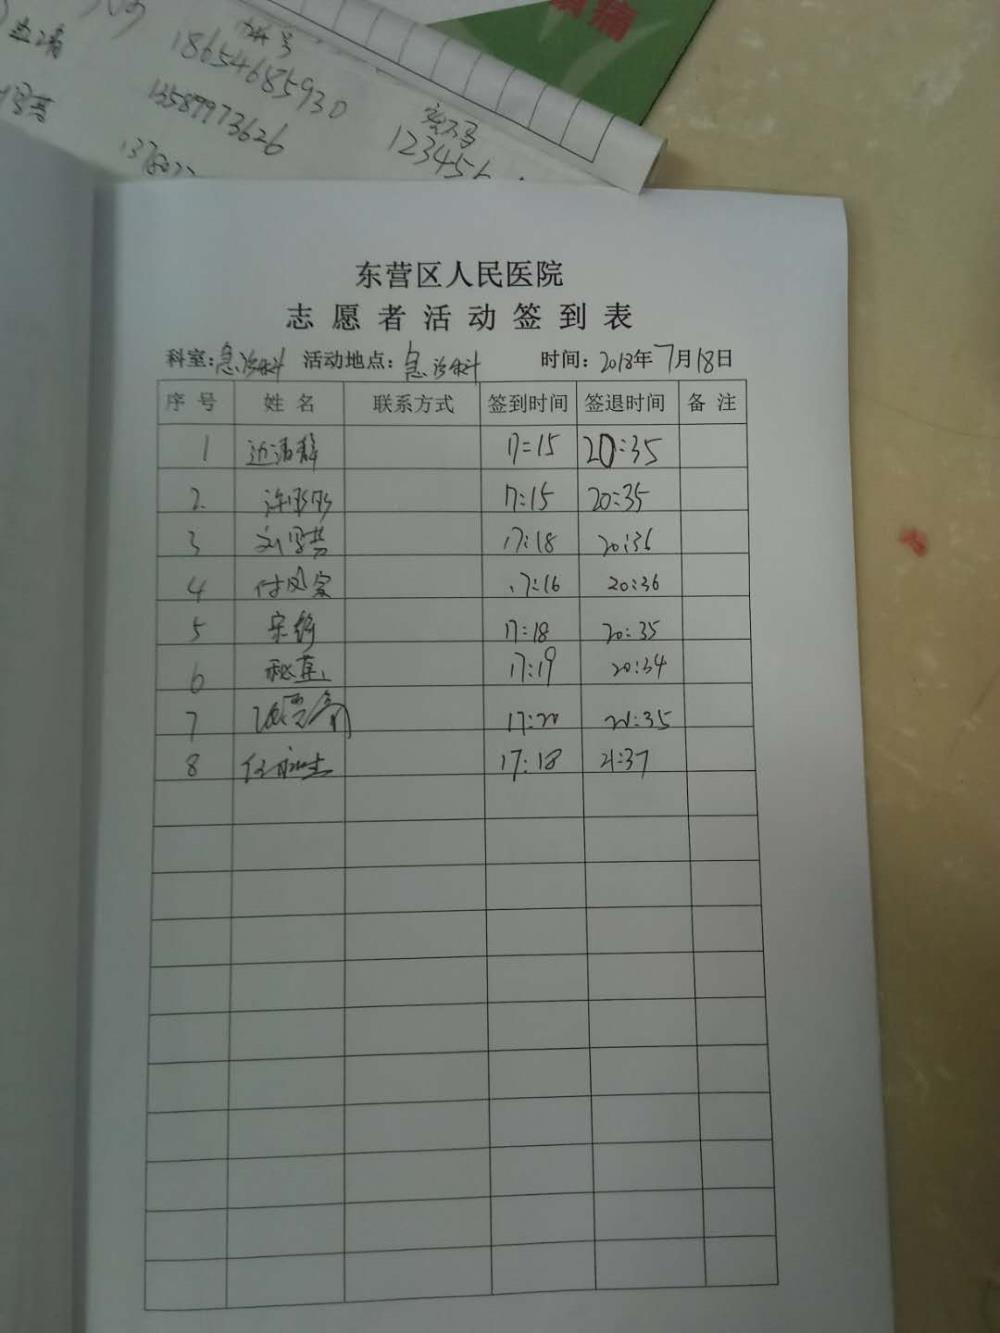 18654685930
13589973626
123456
东营区人民医院
志愿者活动签到表
科室:急诊科 活动地点:急诊科 时间:2018年7月18日
序号 姓名 联系方式 签到时间 签退时间 备注
1 17:15 20:35
2 许彤彤 17:15 20:35
3 17:18 20:36
4 付凤宾 17:16 20:36
5 17:18 20:35
6 17:19 20:34
7 17:20 21:35
8 17:18 21:37